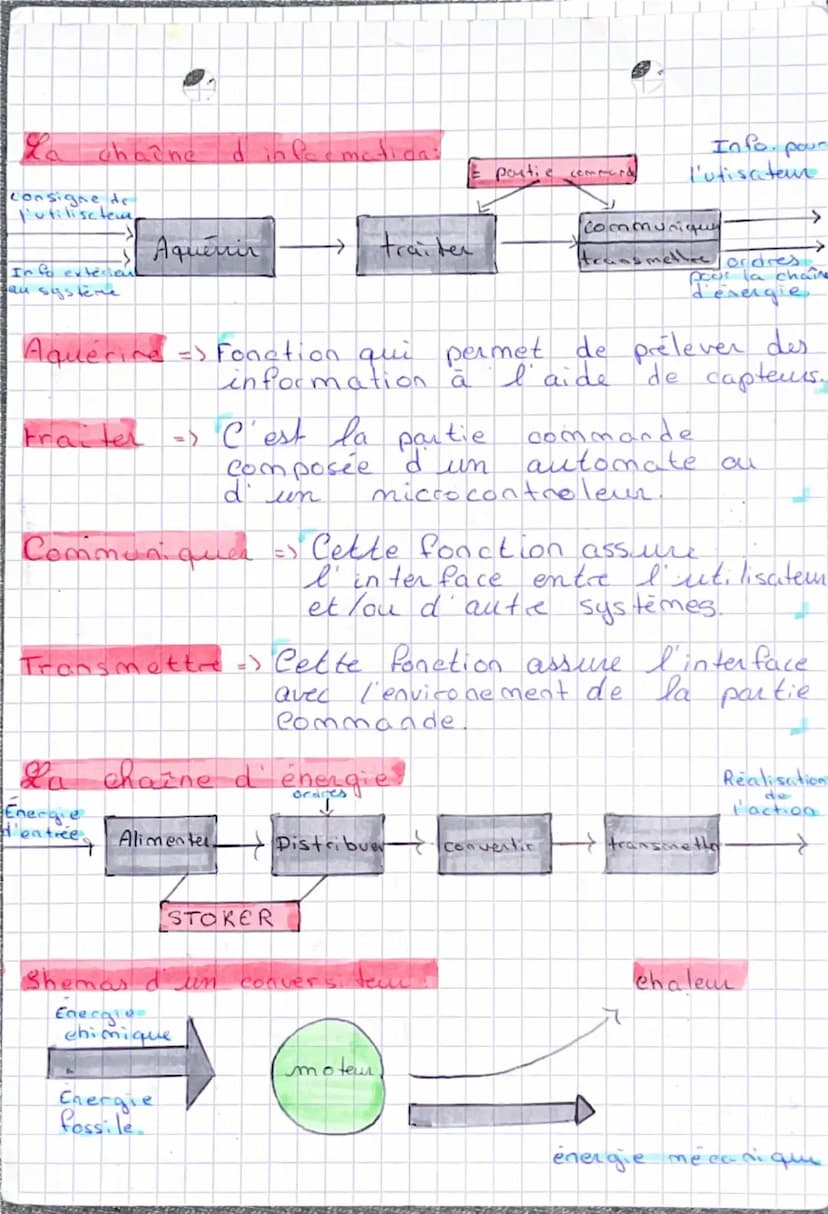 La chaîne d'information:
Info. pour
l'utisateur
= partie command
consigne de
l'utilisateur
communiquer
Aquérir
traiter
transmettre
ordres
pour la chaîne
d'énergie
Info extérieur
au système
Aquérire => Fonction qui permet de prélever des
information à l'aide de capteurs.
traiter => C'est la partie commande
composée d'un automate ou
d'un microcontroleur.
Communiquer => Cette fonction assure
l'interface entre l'utilisateur
et/ou d'autre systèmes.
Transmettre => Cette fonction assure l'interface
avec l'environement de la partie
commande.
La chaîne d'énergie:
ordres
Réalisation
de
l'action
Énergie
d'entrée
Alimenter
Distribuer
convertir
transmettre
STOKER
Shemas d'un convertisseur:
chaleur
Énergie
chimique
moteur
Énergie
fossile.
énergie mécanique